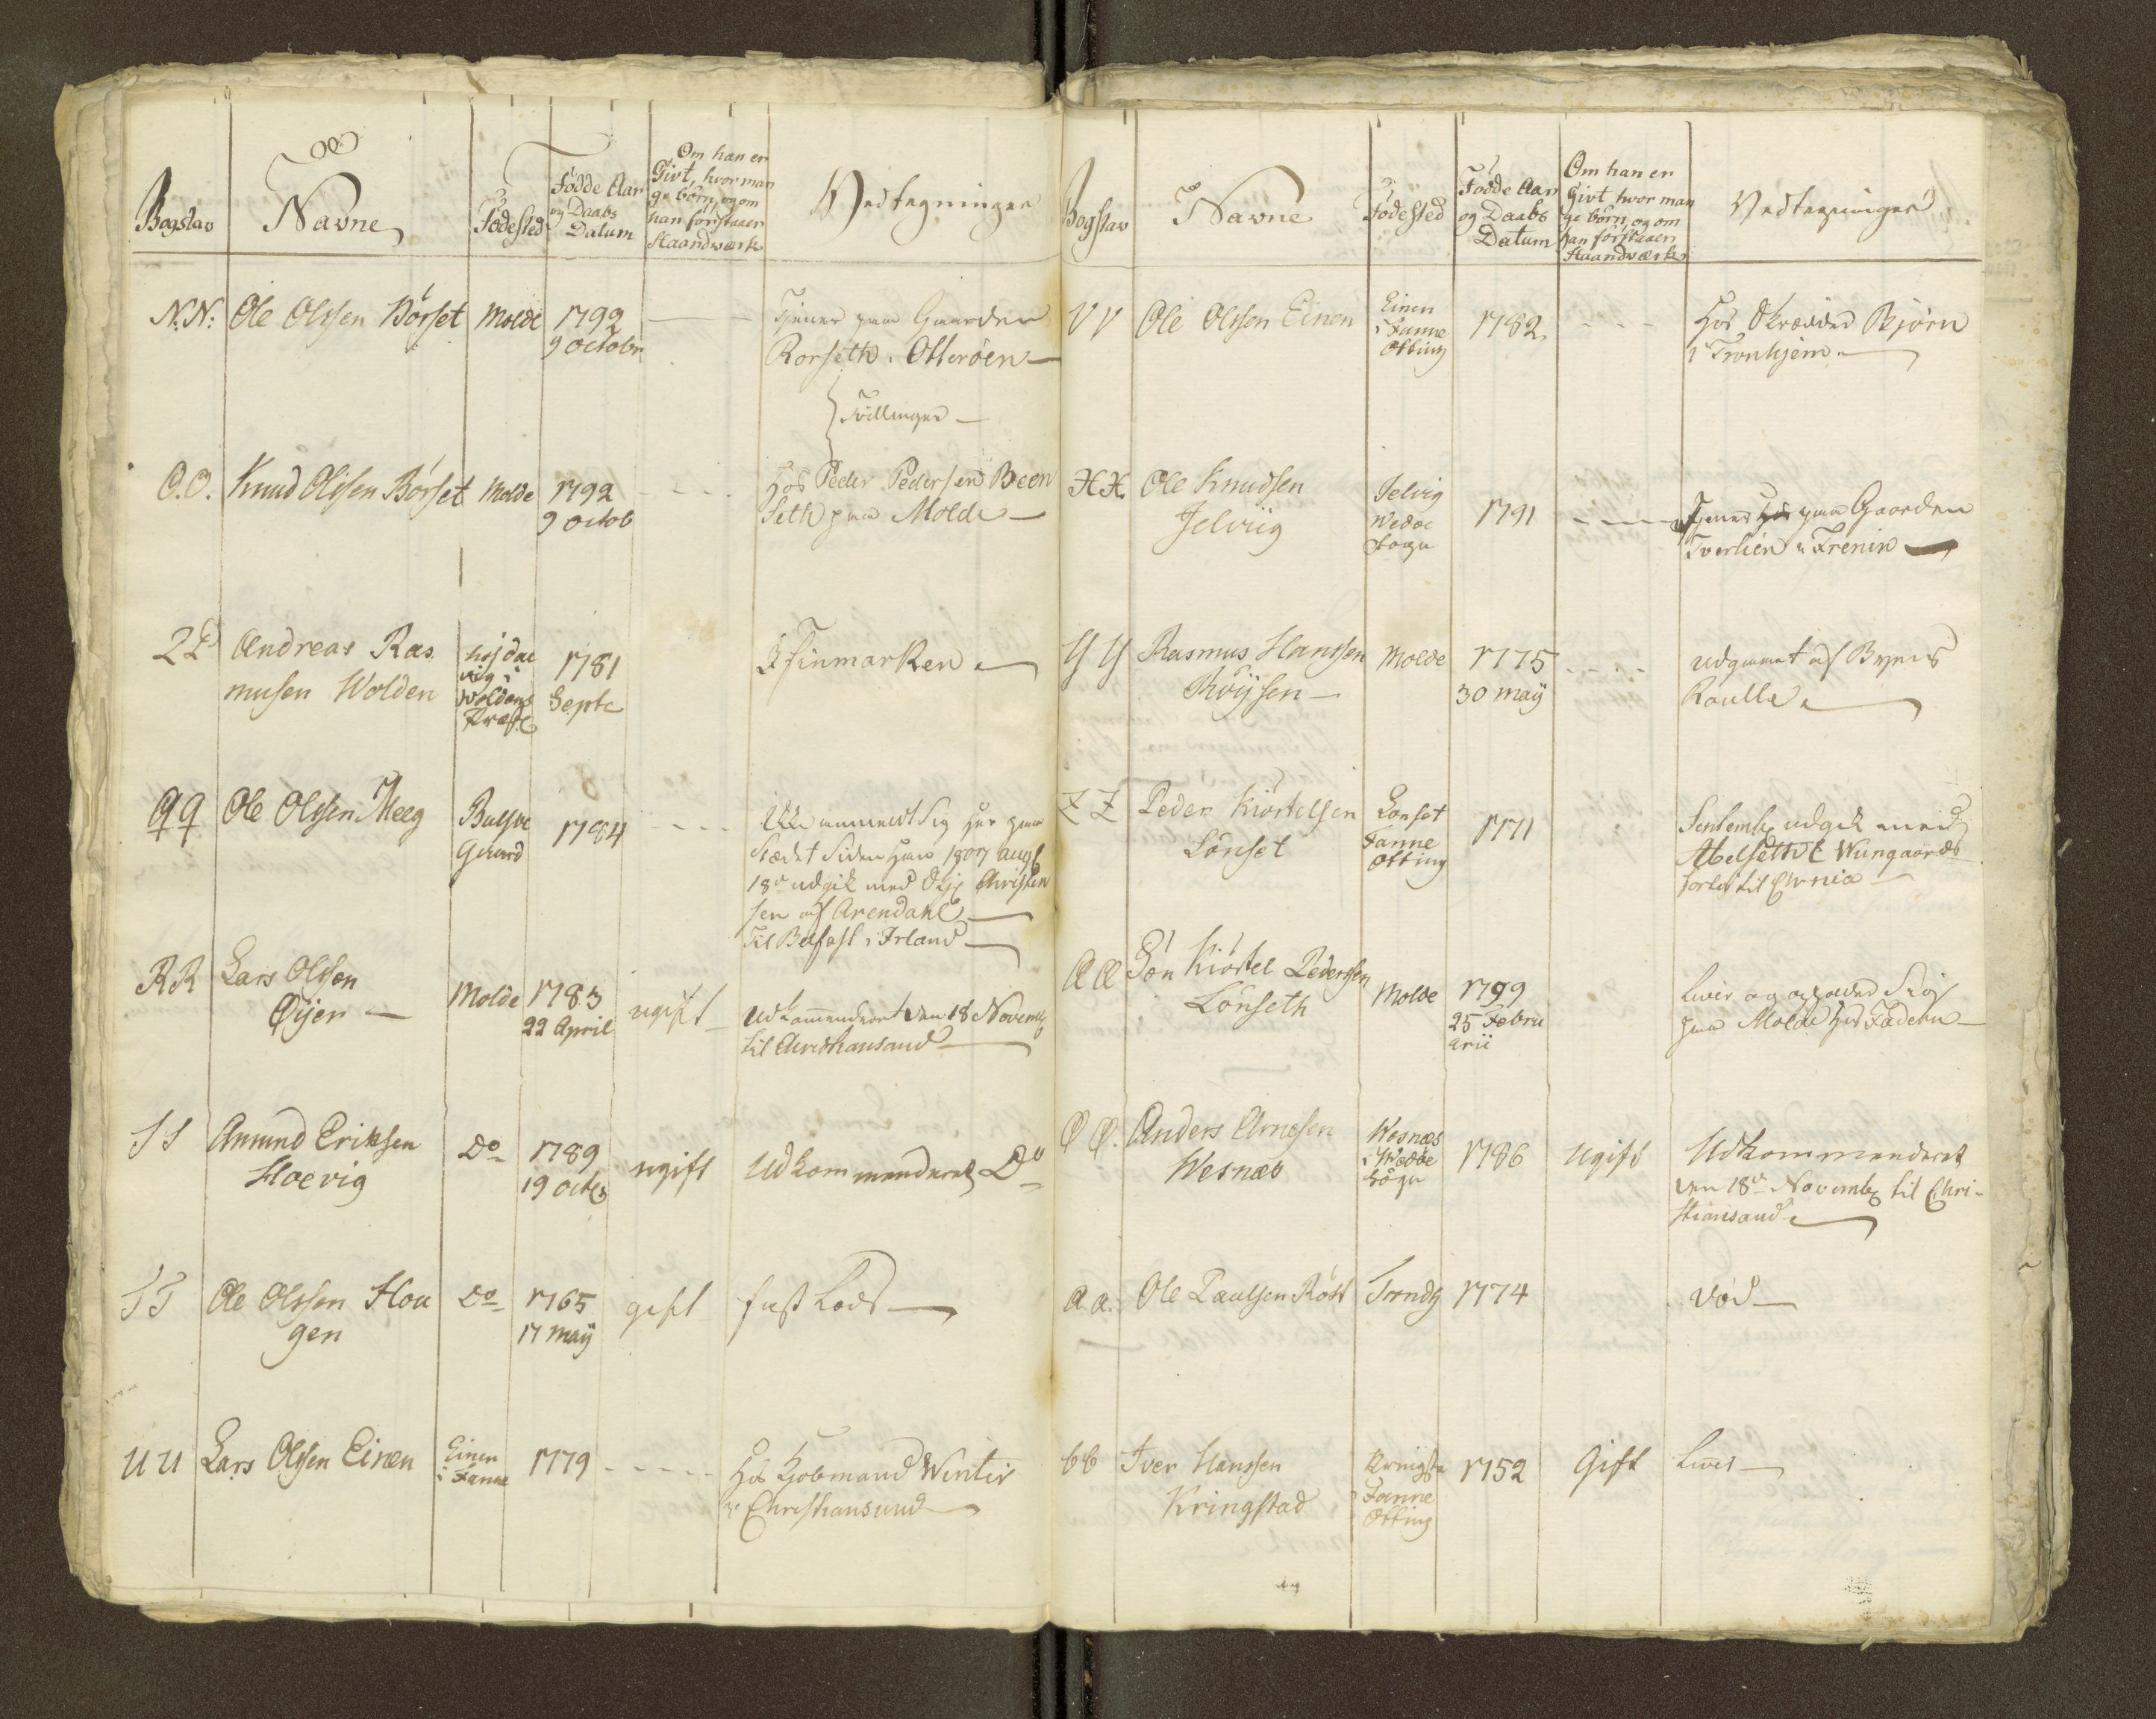 Bogstav
Navne
Födested
Födde Aar
og Daabs
Datum
Om han er
Givt, hvor man
ge börn, og om
han forstaaer
Haandværk
Vedtegninger
N.N:
Ole Olssen Börset
Molde
1792
9 octobr
Tjener paa Gaarden
Rorseth i Otteröen
Tvillinger
O.O.
Knud Olssen Börset
Molde
1792
9 octob
Hos Peder Pedersen Been
Seth paa Molde
Andreas Ras
musen Wolden
1781
Septe
I Finmarken
QQ
Ole Olssen Meeg
Gaard
1784
Ikke anmeldt sig her paa
Stædet siden han 1807 aug
18de udgik med Skip Christen
sen af Arendahl
til Belfast i Irland
RR
Lars Olssen
Öijen
Molde
1783
22 April
ugift
Udkommenderet den 18 Novemb
til Christiansand
SS
Amund Eriksen
Hoevig
Do
1789
19 octb
ugift
Udkommenderet Do
TT
Ole Olssen Hou
gen
Do
1765
17 Maÿ
gift
fast Lods
UU
Lars Olssen Einen
Einen
i Fanne
1779
Hos Kjobmand Winter
i Christiansund
Bogstav
Navne
Födested
Födde Aar
og Daabs
Datum
Om han er
Givt hvor man
ge börn, og om
han forstaaer
Haandværk
Vedtegninger
VV
Ole Olssen Einen
Einen
i Fanne
Otting
1782
Hos Skrædder Björn
i Tronhjem
XX
Ole Knudsen
Jelviig
Jelvig
Wedöe
Sogn
1791
Tjener hos paa Gaarden
Tverlien i Frenen
YY
Rasmus Hanssen
Thöÿsen
Molde
1775
30 Maÿ
udgaaet af Byens
Roulle
ZZ
Peder Kiörtelsen
Lönset
Lonset
Fanne
Otting
1771
Septemb udgik med
Abelseth & Wungaards
Æ Æ
Sön Kiörtel Pederssen
Lönseth
Molde
1799
25 Febru
arii
paa Molde hos Faderen
Ø Ø.
Anders Arnesen
Wesnæs
Wesnæs
i Wedöe
Sogn
1786
ugift
Udkommenderet
den 18de Novemb til Chri-
stiansand
a a.
Ole Paulsen Röst
Trondh
1774
död
bb
Iver Hanssen
Kringstad
Kringsta
i Fanne
Otting
1752
Gift
Lever